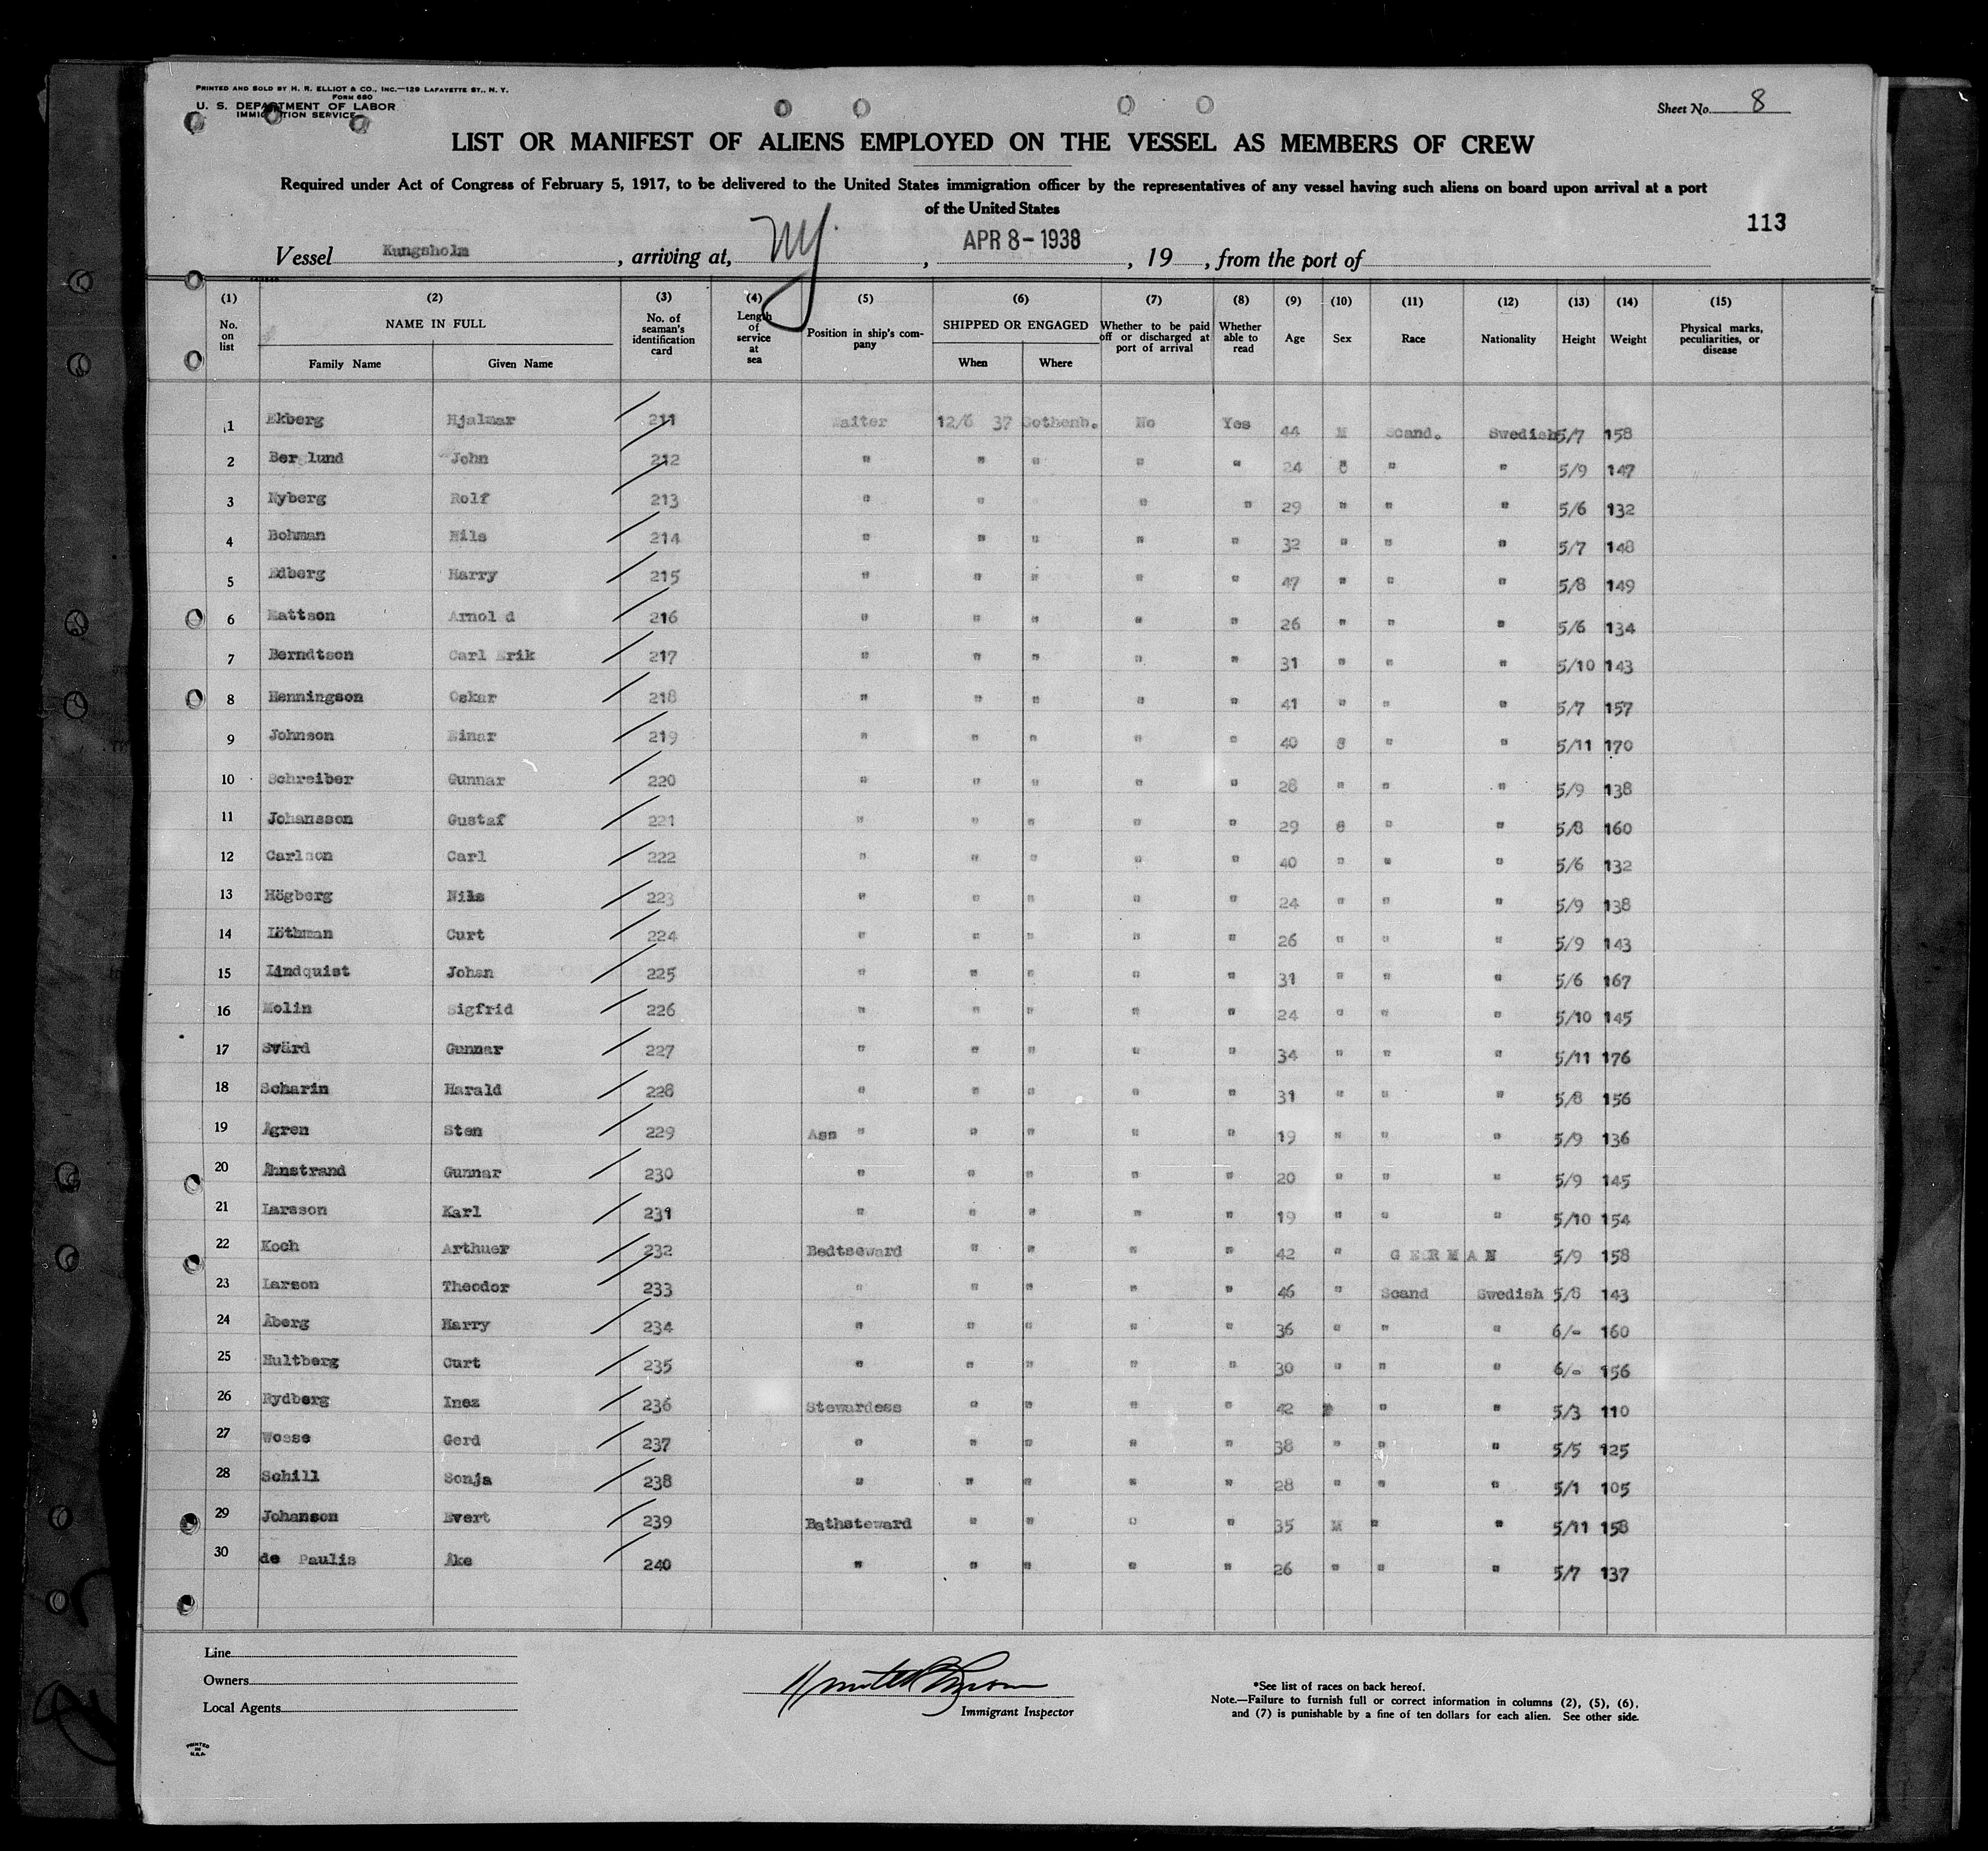 PRINTED AND SOLD BY H. R. ELLIOT & CO., INC.—129 LAFAYETTE ST., N. Y.
FORM 680
U. S. DEPARTMENT OF LABOR
IMMIGRATION SERVICE
Sheet No. 8
LIST OR MANIFEST OF ALIENS EMPLOYED ON THE VESSEL AS MEMBERS OF CREW
Required under Act of Congress of February 5, 1917, to be delivered to the United States immigration officer by the representatives of any vessel having such aliens on board upon arrival at a port
of the United States
113
Vessel Kungsholm, arriving at, NY, APR 8-1938, 19, from the port of
(1) (2) (3) (4) (5) (6) (7) (8) (9) (10) (11) (12) (13) (14) (15)
No. on list NAME IN FULL Family Name Given Name No. of seaman's identification card Length of service at sea Position in ship's company SHIPPED OR ENGAGED When Where Whether to be paid off or discharged at port of arrival Whether able to read Age Sex Race Nationality Height Weight Physical marks, peculiarities, or disease
1 Ekberg Hjalmar 211 Waiter 12/6 37 Gothenb. No Yes 44 M Scand. Swedish 5/7 158
2 Berglund John 212 " " " " " 24 " " " 5/9 147
3 Nyberg Rolf 213 " " " " 29 " " " 5/6 132
4 Bohman Nils 214 " " " " " 32 " " " 5/7 148
5 Edberg Harry 215 " " " " " 47 " " " 5/8 149
6 Mattson Arnold 216 " " " " " 26 " " " 5/6 134
7 Berndtson Carl Erik 217 " " " " " 31 " " " 5/10 143
8 Henningson Oskar 218 " " " " " 41 " " " 5/7 157
9 Johnson Einar 219 " " " " " 40 " " " 5/11 170
10 Schreiber Gunnar 220 " " " " " 28 " " " 5/9 138
11 Johansson Gustaf 221 " " " " " 29 " " " 5/8 160
12 Carlson Carl 222 " " " " " 40 " " " 5/6 132
13 Högberg Nils 223 " " " " " 24 " " " 5/9 138
14 Löthman Curt 224 " " " " " 26 " " " 5/9 143
15 Lindquist Johan 225 " " " " " 31 " " " 5/6 167
16 Molin Sigfrid 226 " " " " " 24 " " " 5/10 145
17 Svärd Gunnar 227 " " " " " 34 " " " 5/11 176
18 Scharin Harald 228 " " " " " 31 " " " 5/8 156
19 Ågren Sten 229 Ass " " " " " 19 " " " 5/9 136
20 Åhnstrand Gunnar 230 " " " " " 20 " " " 5/9 145
21 Larsson Karl 231 " " " " " 19 " " " 5/10 154
22 Koch Arthuer 232 Bedtseward " " " " 42 " GERMAN 5/9 158
23 Larson Theodor 233 " " " " " 46 " Scand Swedish 5/8 143
24 Åberg Harry 234 " " " " " 36 " " " 6/- 160
25 Hultberg Curt 235 " " " " " 30 " " " 6/- 156
26 Rydberg Inez 236 Stewardess " " " " 42 F " " 5/3 110
27 Wosse Gerd 237 " " " " " 38 " " " 5/5 125
28 Schill Sonja 238 " " " " " 28 " " " 5/1 105
29 Johanson Evert 239 Bathsteward " " " " 35 M " " 5/11 158
30 de Paulis Åke 240 " " " " " 26 " " " 5/7 137
Line
Owners
Local Agents
Immigrant Inspector
*See list of races on back hereof.
Note.—Failure to furnish full or correct information in columns (2), (5), (6),
and (7) is punishable by a fine of ten dollars for each alien. See other side.
PRINTED IN U.S.A.